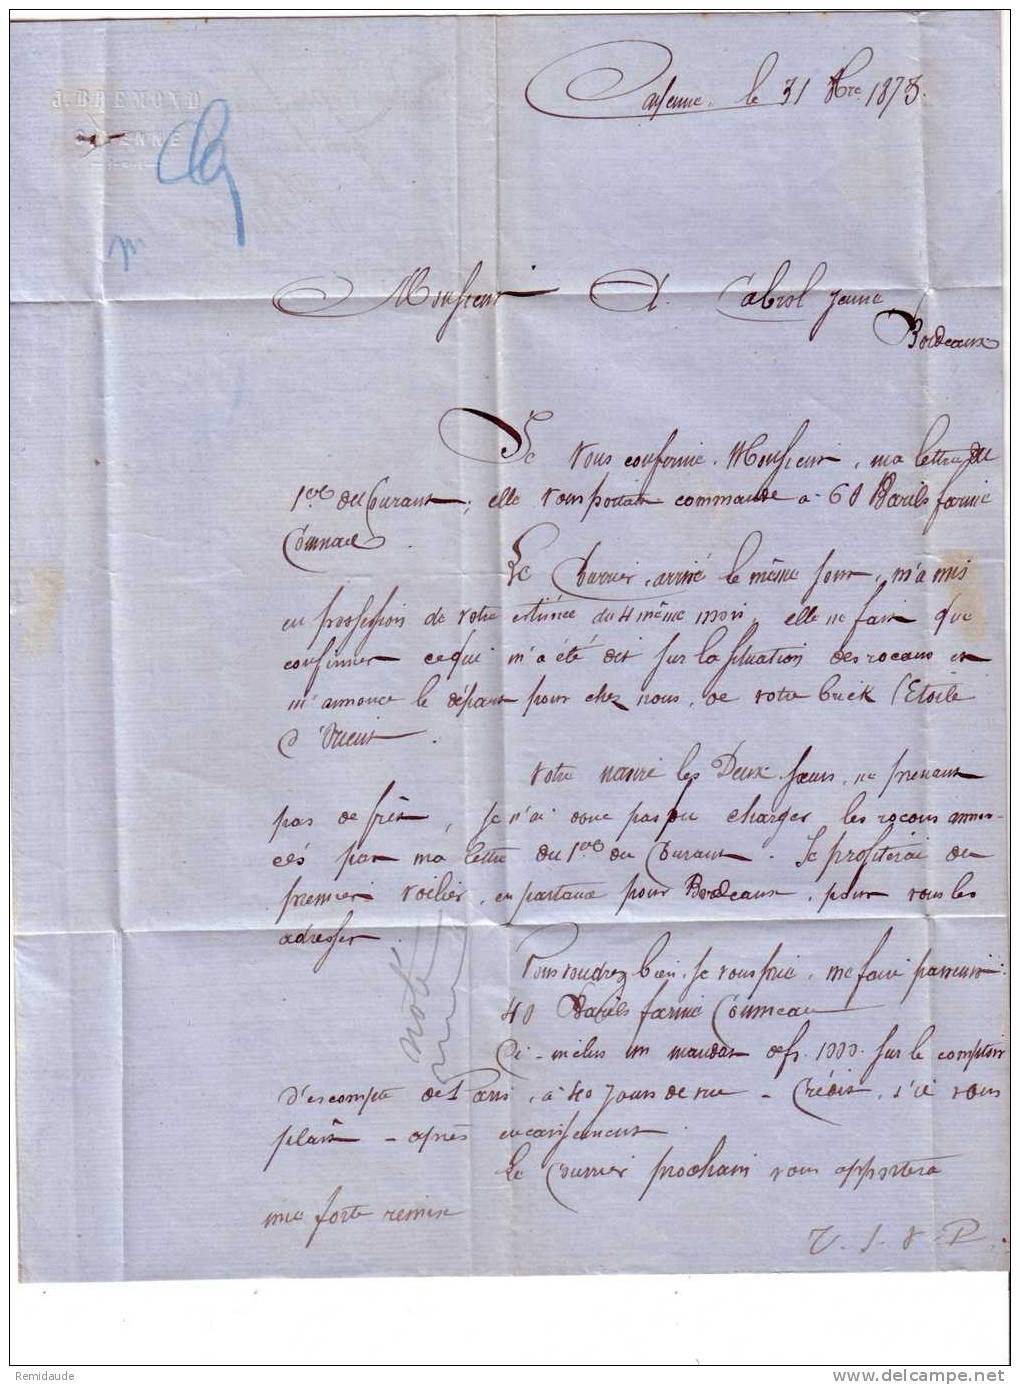 J. BREMOND
CAYENNE
Cayenne, le 31 Xbre 1873.
Monsieur A. Cabrol jeune
Bordeaux
Je vous confirme, Monsieur, ma lettre du
1er du Courant; elle vous portait commande à 60 Barils farine
Comnac
Le Courrier, arrivé le même jour, m'a mis
en possession de votre estimée du 4 même mois, elle ne fait que
confirmer ce qui m'a été dit sur la situation des rocous et
m'annonce le départ pour chez nous, de votre brick l'Etoile
d'Orient.
Votre navire les Deux Sœurs, ne prenant
pas de frêt, je n'ai donc pas pu charger les rocous annon-
cés par ma lettre du 1er du Courant. Je profiterai du
premier voilier, en partance pour Bordeaux, pour vous les
adresser.
Vous voudrez bien, je vous prie, me faire parvenir:
40 Barils farine Comneau
Ci-inclus un mandat de fr. 1000. sur le comptoir
d'escompte de Paris, à 40 jours de vue - Crédit, s'il vous
plait - après encaissement.
Le Courrier prochain vous apportera
une forte remise
T. S. V. P.
noté
Remidaude
www.delcampe.net